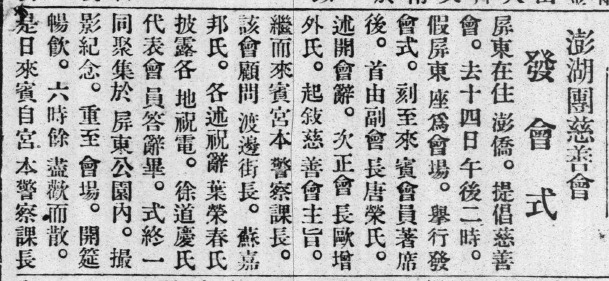 澎湖團慈善會
發會式
屏東在住澎僑。提倡慈善
會。去十四日午後二時。
假屏東座爲會場。舉行發
會式。刻至來賓會員著席
後。首由副會長唐榮氏。
述開會辭。次正會長歐增
外氏。起敍慈善會主旨。
繼而來賓宮本警察課長。
該會顧問渡邊街長。蘇嘉
邦氏。各述祝辭葉榮春氏
披露各地祝電。徐道慶氏
代表會員答辭畢。式終一
同聚集於屏東公園內。撮
影紀念。重至會場。開筵
暢飲。六時餘盡歡而散。
是日來賓自宮本警察課長